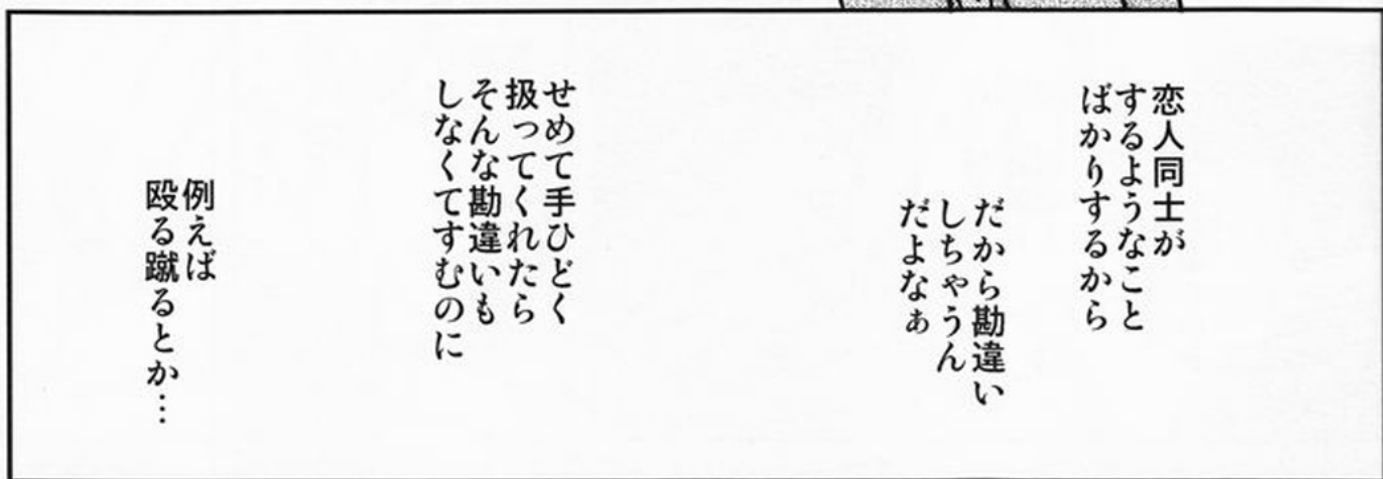 恋人同士が
するようなこと
ばかりするから
だから勘違い
しちゃうん
だよなぁ
せめて手ひどく
扱ってくれたら
そんな勘違いも
しなくてすむのに
例えば
殴る蹴るとか…